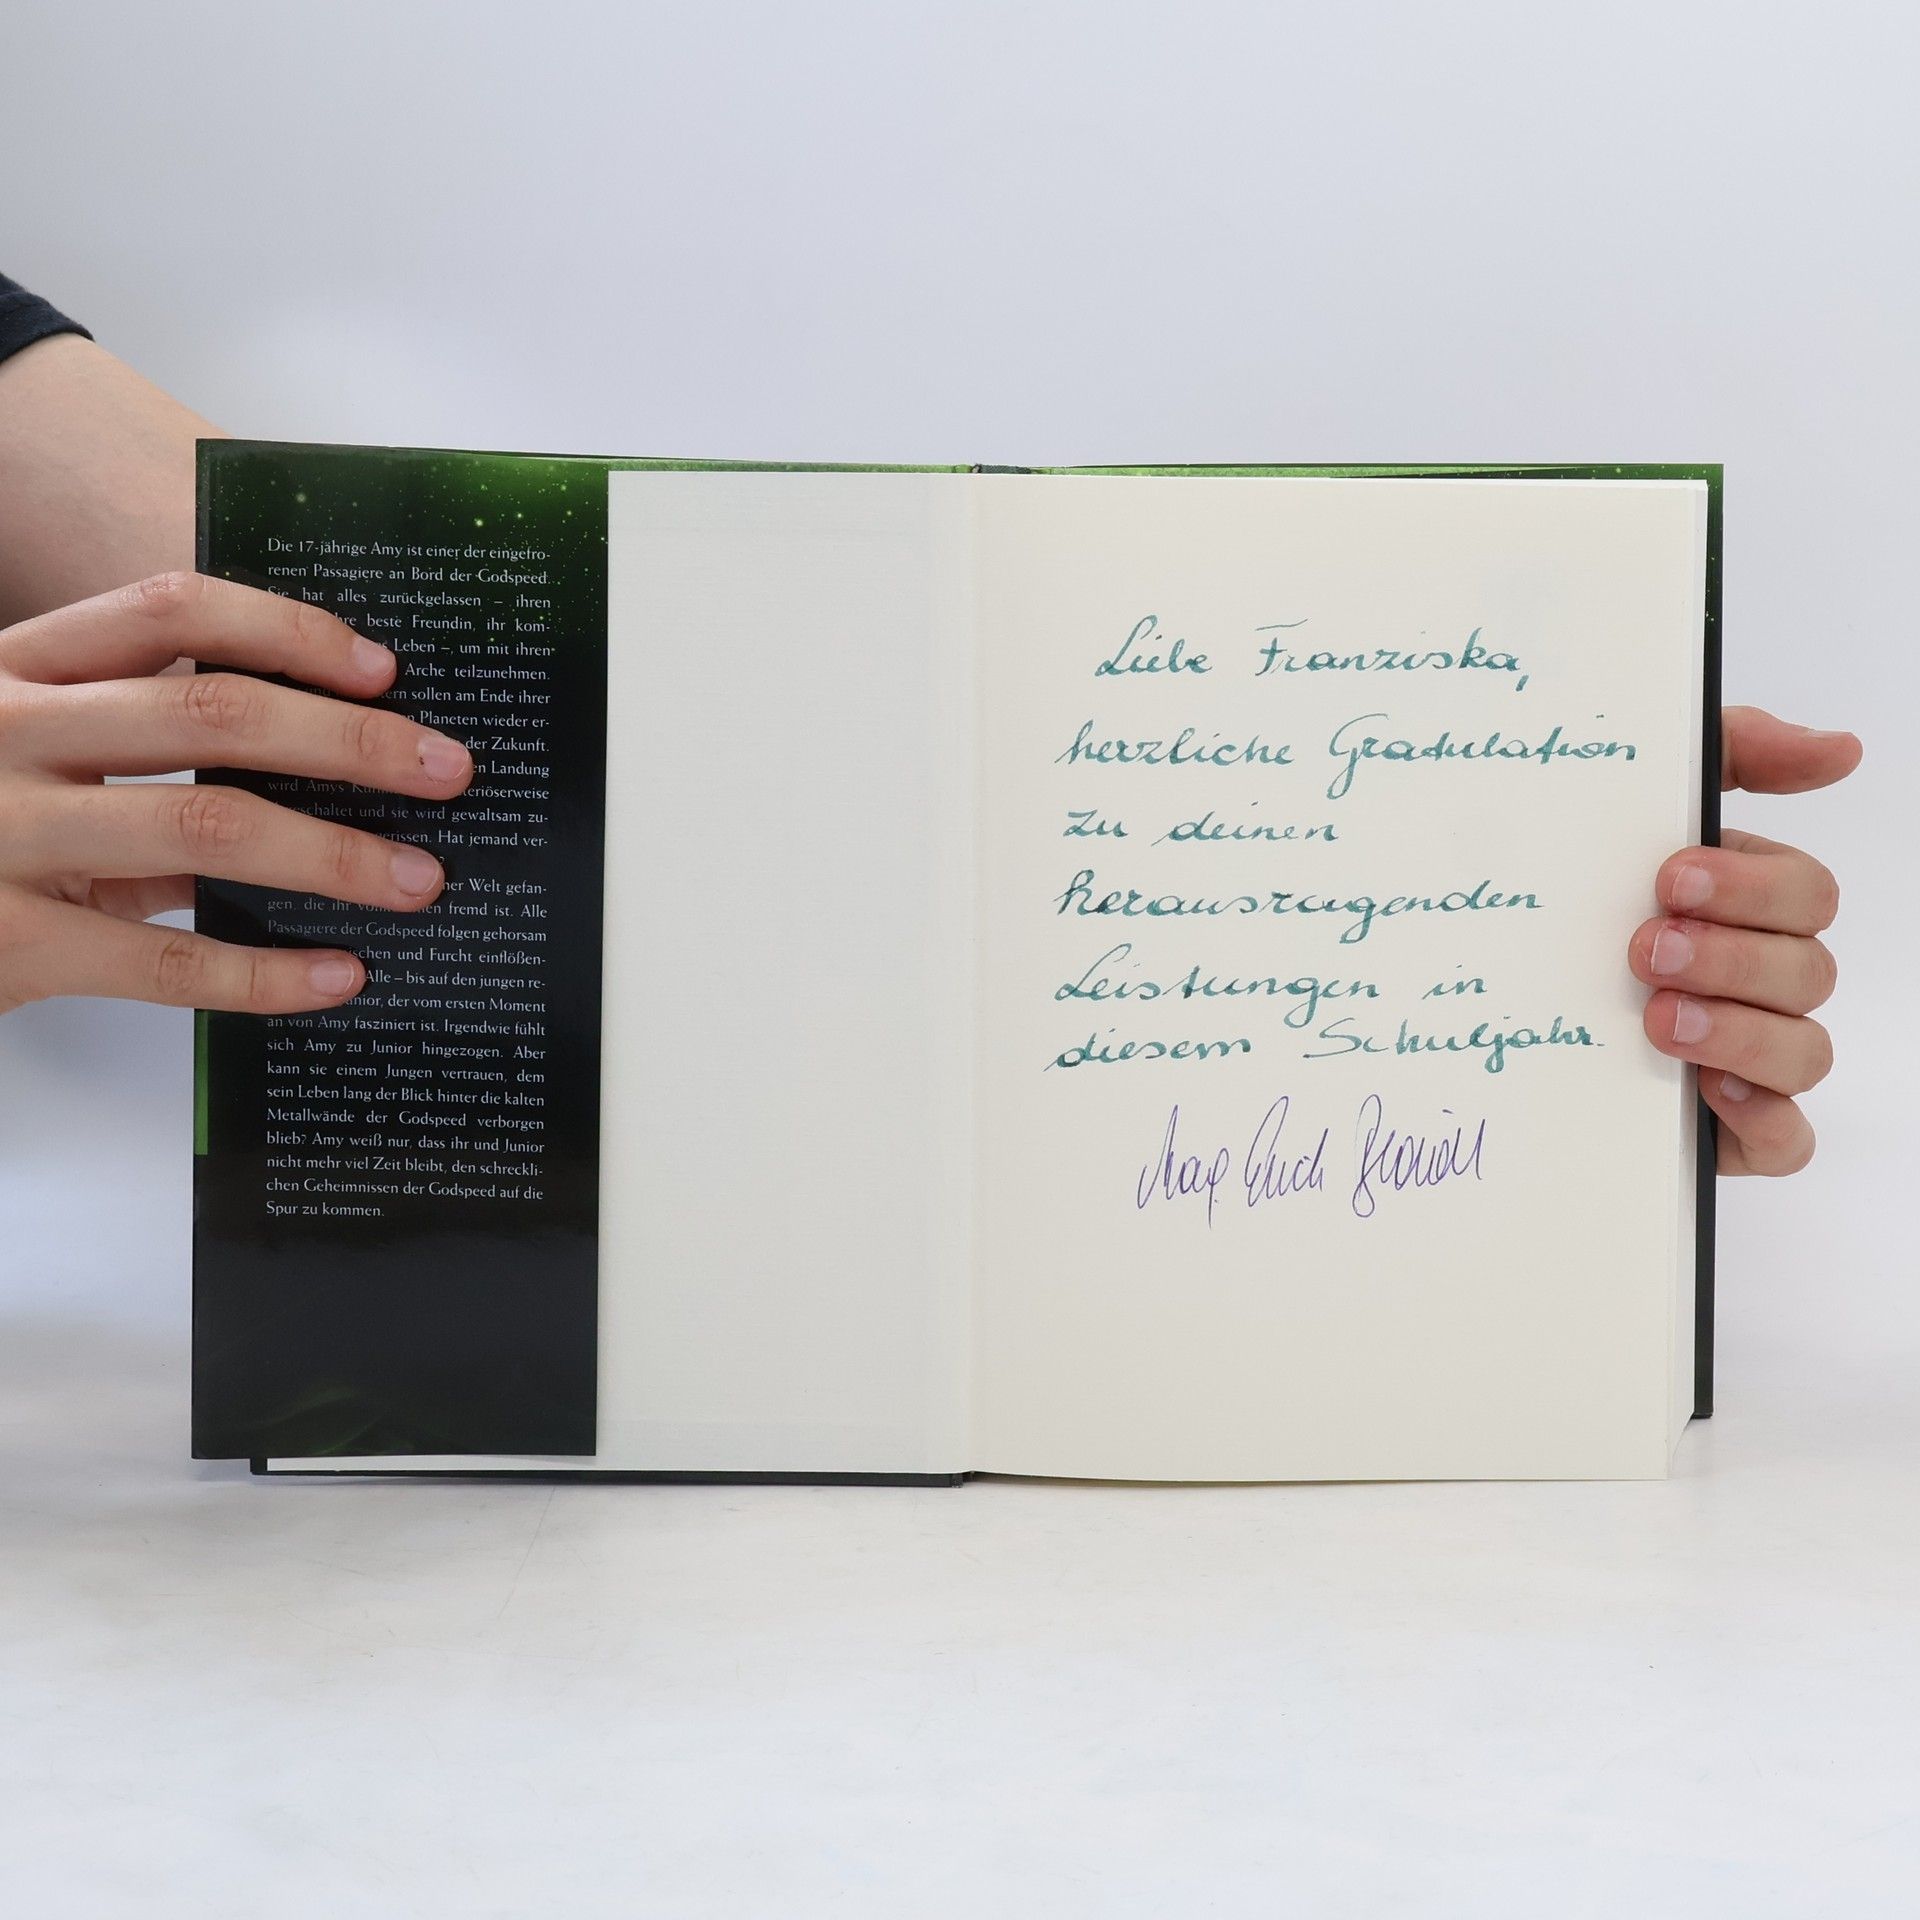 Die 17-jährige Amy ist einer der eingefro-
renen Passagiere an Bord der Godspeed.
Sie hat alles zurückgelassen – ihren
beste Freundin, ihr kom-
Leben –, um mit ihren
Arche teilzunehmen.
sollen am Ende ihrer
Planeten wieder er-
der Zukunft.
Landung
wird Amys
und sie wird gewaltsam zu-
Hat jemand ver-
Welt gefan-
gen, die ihr fremd ist. Alle
Passagiere der Godspeed folgen gehorsam
und Furcht einflößen-
Alle – bis auf den jungen re-
der vom ersten Moment
an von Amy fasziniert ist. Irgendwie fühlt
sich Amy zu Junior hingezogen. Aber
kann sie einem Jungen vertrauen, dem
sein Leben lang der Blick hinter die kalten
Metallwände der Godspeed verborgen
blieb? Amy weiß nur, dass ihr und Junior
nicht mehr viel Zeit bleibt, den schreckli-
chen Geheimnissen der Godspeed auf die
Spur zu kommen.
Liebe Franziska,
herzliche Gratulation
zu deinen
herausragenden
Leistungen in
diesem Schuljahr.